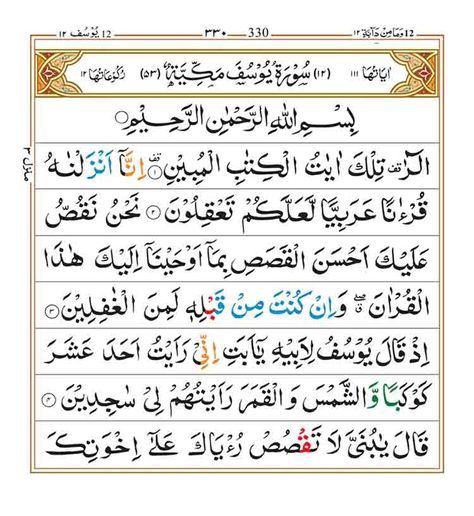 ١٢ يُوْسُف 12 ٣٣٠ 330 ١٢ وَمَا مِنْ دَآبَّةٍ 12
اٰيَاتُهَا ١١١ (١٢) سُوْرَةُ يُوْسُفَ مَكِّيَّةٌ (٥٣) رُكُوْعَاتُهَا ١٢
بِسْمِ اللّٰهِ الرَّحْمٰنِ الرَّحِيْمِ
الٓرٰ ۫ تِلْكَ اٰيٰتُ الْكِتٰبِ الْمُبِيْنِ ۝١ اِنَّاۤ اَنْزَلْنٰهُ
قُرْءٰنًا عَرَبِيًّا لَّعَلَّكُمْ تَعْقِلُوْنَ ۝٢ نَحْنُ نَقُصُّ
عَلَيْكَ اَحْسَنَ الْقَصَصِ بِمَاۤ اَوْحَيْنَاۤ اِلَيْكَ هٰذَا
الْقُرْاٰنَ ۖ وَاِنْ كُنْتَ مِنْ قَبْلِهٖ لَمِنَ الْغٰفِلِيْنَ ۝٣
اِذْ قَالَ يُوْسُفُ لِاَبِيْهِ يٰۤاَبَتِ اِنِّيْ رَاَيْتُ اَحَدَ عَشَرَ
كَوْكَبًا وَّالشَّمْسَ وَالْقَمَرَ رَاَيْتُهُمْ لِيْ سٰجِدِيْنَ ۝٤
قَالَ يٰبُنَيَّ لَا تَقْصُصْ رُءْيَاكَ عَلٰٓى اِخْوَتِكَ
منزل ٣